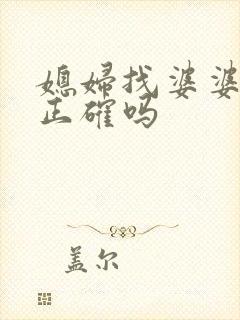 媳妇找婆婆
正确吗
盖尔